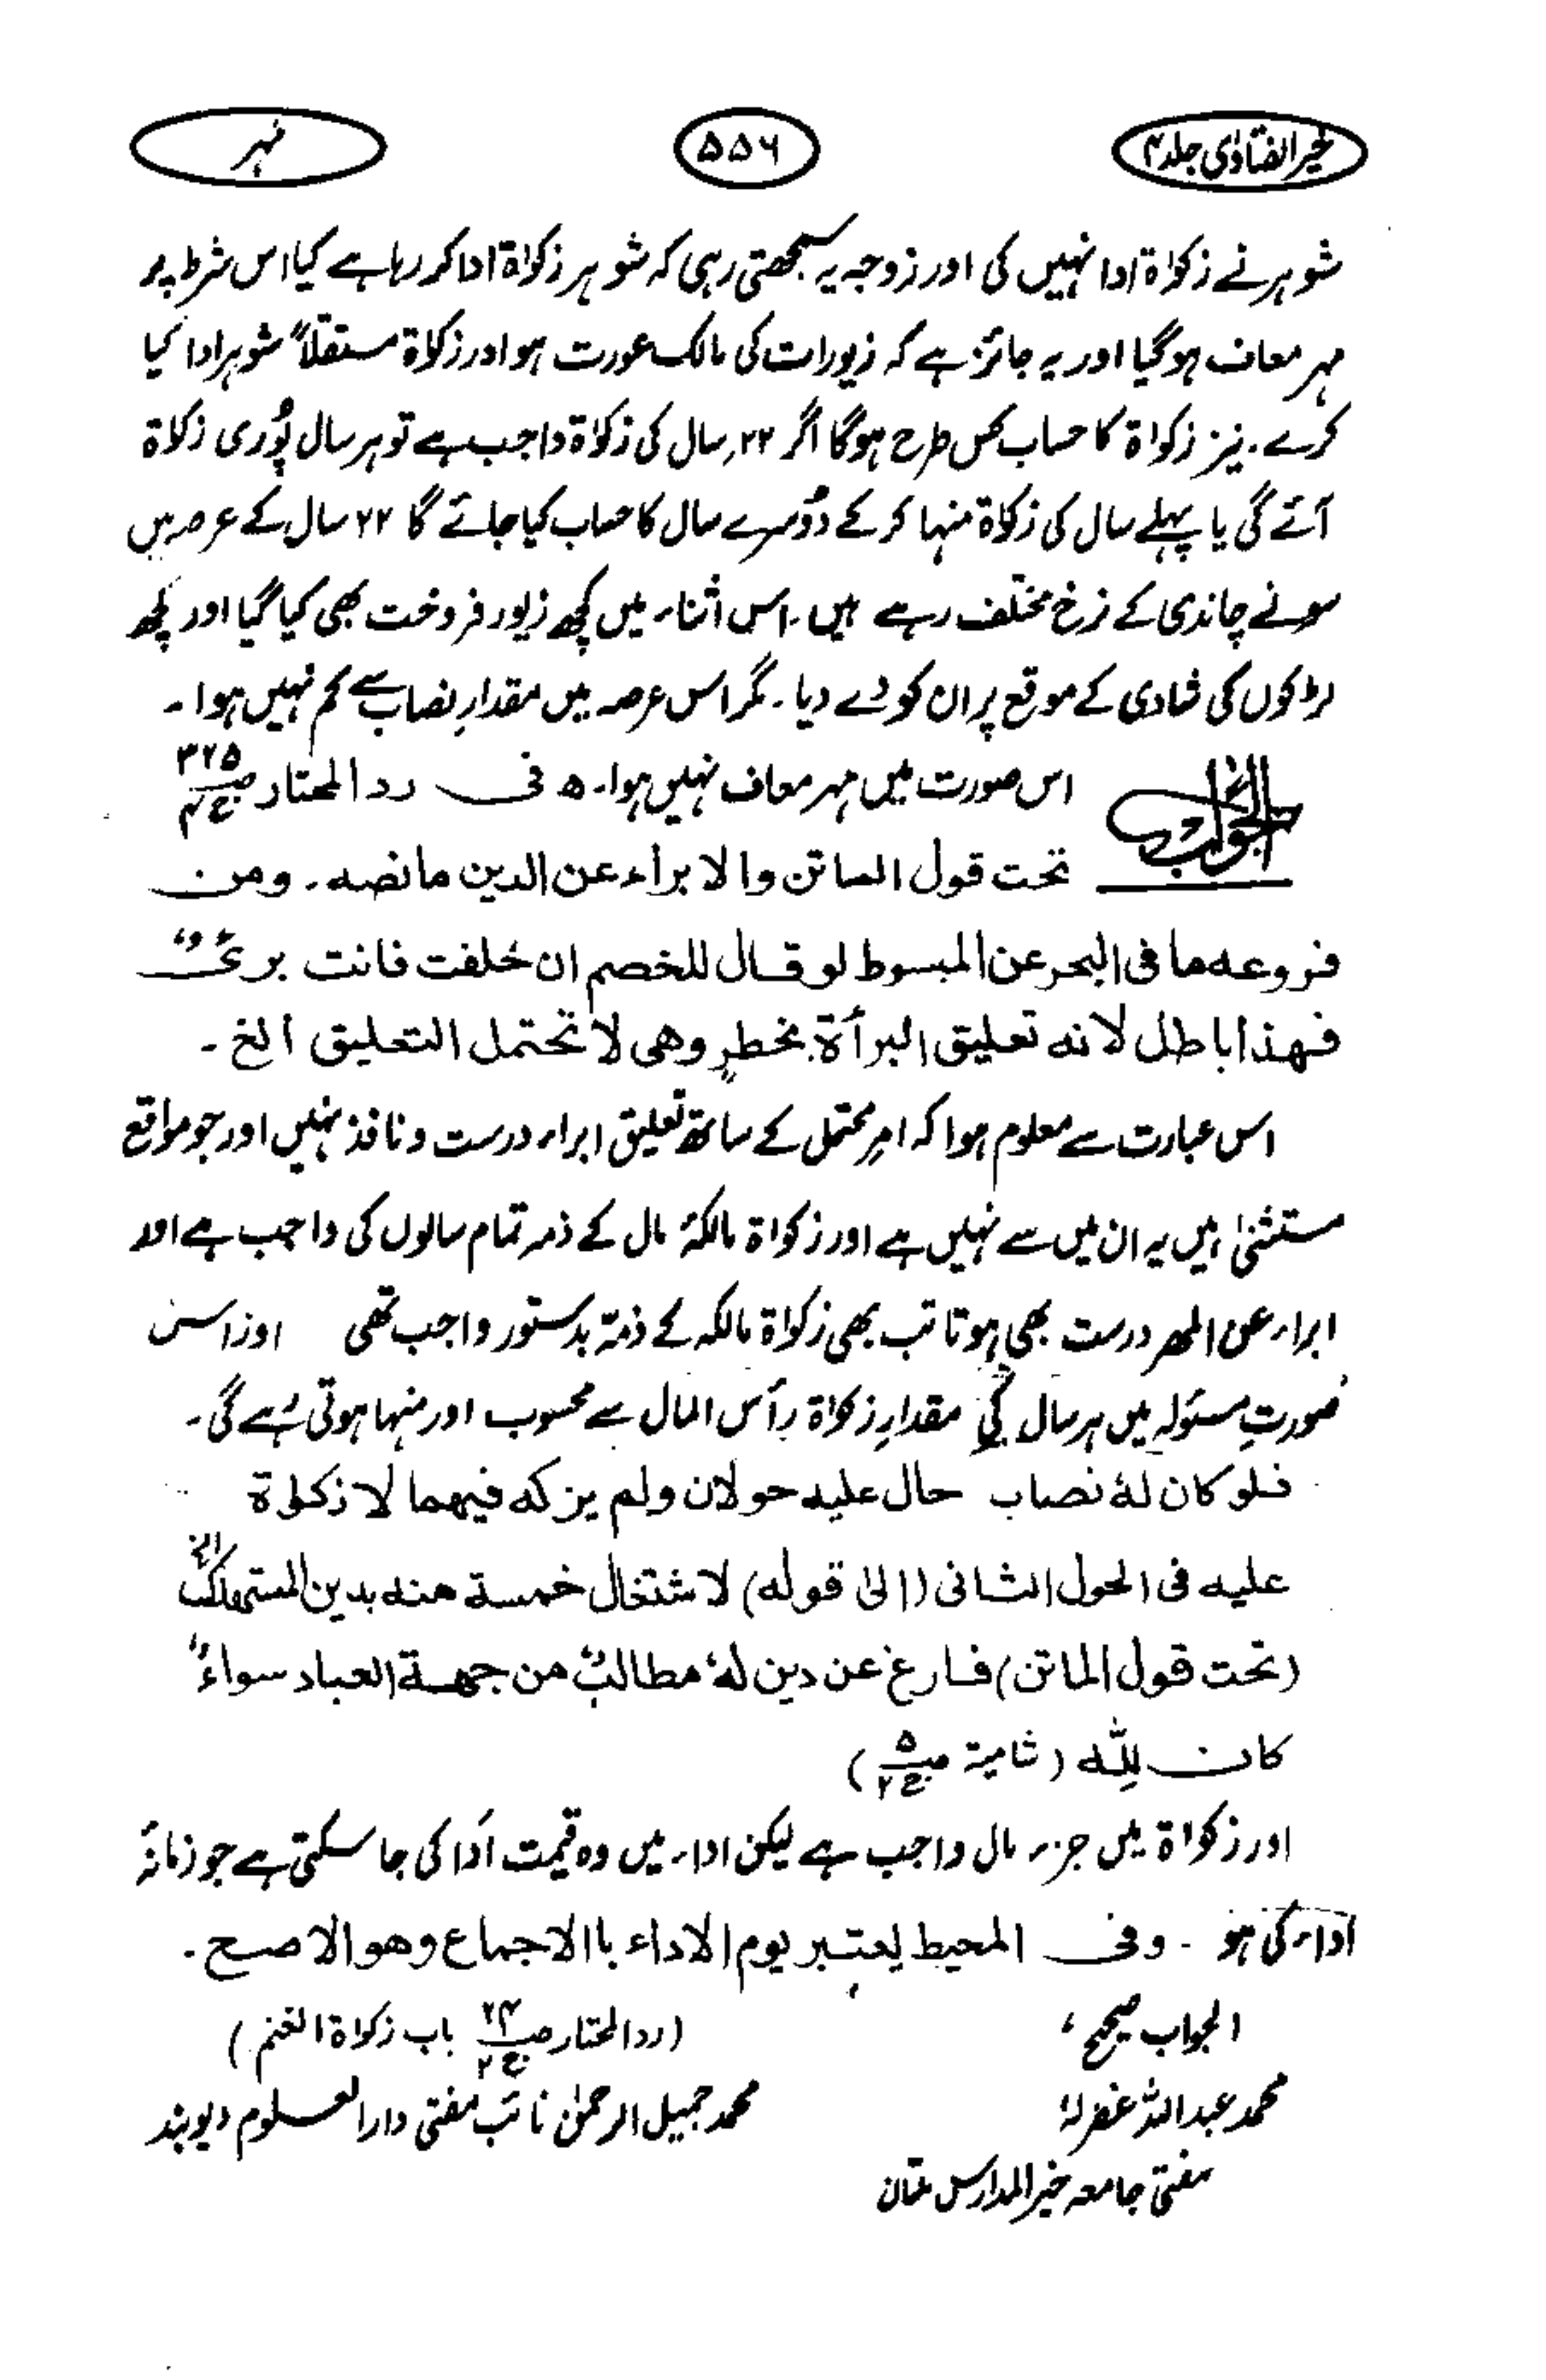 خیر الفتاوٰی جلد ۴
۵۵۶
مہر
شوہر نے زکوٰۃ ادا نہیں کی اور زوجہ یہ سمجھتی رہی کہ شوہر زکوٰۃ ادا کر رہا ہے کیا اس شرط پر
مہر معاف ہو گیا اور یہ جائز ہے کہ زیورات کی مالک عورت ہو اور زکوٰۃ مستقلاً شوہر ادا کیا
کرے۔ نیز زکوٰۃ کا حساب کس طرح ہوگا اگر ۲۲؍ سال کی زکوٰۃ واجب ہے تو ہر سال پُوری زکوٰۃ
آئے گی یا پہلے سال کی زکوٰۃ منہا کر کے دُوسرے سال کا حساب کیا جائے گا ۲۲ سال کے عرصہ میں
سونے چاندی کے نرخ مختلف رہے ہیں۔ اس اثناء میں کچھ زیور فروخت بھی کیا گیا اور کچھ
لڑکوں کی شادی کے موقع پر ان کو دے دیا۔ مگر اس عرصہ میں مقدارِ نصاب سے کم نہیں ہوا۔
الجواب اس صورت میں مہر معاف نہیں ہوا۔ فی رد المحتار ص۳۲۵ ج۴
تحت قول الماتن والابراء عن الدین ما نصہ۔ ومن
فروعہ ما فی البحر عن المبسوط لو قال للخصم ان حلفت فانت بریٔ
فھذا باطل لانہ تعلیق البرأۃ بخطرٍ وھی لا تحتمل التعلیق الخ۔
اس عبارت سے معلوم ہوا کہ امرِ محتمل کے ساتھ تعلیق ابراء درست و نافذ نہیں اور جو مواقع
مستثنیٰ ہیں یہ ان میں سے نہیں ہے اور زکوٰۃ مالکۂ مال کے ذمہ تمام سالوں کی واجب ہے اور
ابراء عن المھر درست بھی ہوتا تب بھی زکوٰۃ مالکہ کے ذمّہ بدستور واجب تھی اور اس
صورتِ مسئولہ میں ہر سال کی مقدارِ زکوٰۃ رأس المال سے محسوب اور منہا ہوتی رہے گی۔
فلو کان لہٗ نصاب حال علیہ حولان ولم یزکہ فیھما لا زکوٰۃ
علیہ فی الحول الثانی (الیٰ قولہ) لاشتغال خمسۃ منہ بدین المستھلک الخ
(تحت قول الماتن) فارغ عن دین لہٗ مطالبٌ من جھۃ العباد سواءٌ
کان للّٰہ (شامیۃ ص۵ ج۲)
اور زکوٰۃ میں جزء مال واجب ہے لیکن اداء میں وہ قیمت اَدا کی جا سکتی ہے جو زمانۂ
اداء کی ہو۔ وفی المحیط یعتبر یوم الاداء با الاجماع وھو الاصح۔
(رد المحتار ص۲۴ ج۲ باب زکوٰۃ الغنم)
الجواب صحیح،
محمد عبداللہ غفرلہٗ
محمد جمیل الرحمٰن نائب مفتی دارالعلوم دیوبند
مفتی جامعہ خیر المدارس ملتان